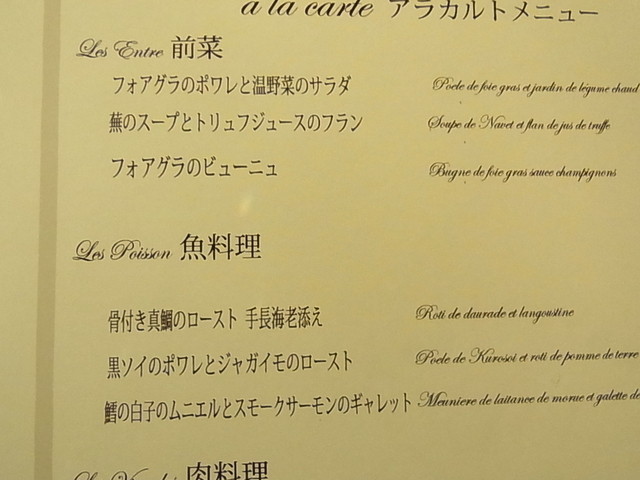 à la carte アラカルトメニュー
Les Entre 前菜
フォアグラのポワレと温野菜のサラダ Poele de foie gras et jardin de légume chaud
蕪のスープとトリュフジュースのフラン Soupe de Navet et flan de jus de truffe
フォアグラのビューニュ Bugne de foie gras sauce champignons
Les Poisson 魚料理
骨付き真鯛のロースト 手長海老添え Roti de daurade et langoustine
黒ソイのポワレとジャガイモのロースト Poele de Kurosoi et roti de pomme de terre
鱈の白子のムニエルとスモークサーモンのギャレット Meuniere de laitance de morue et galette de
肉料理